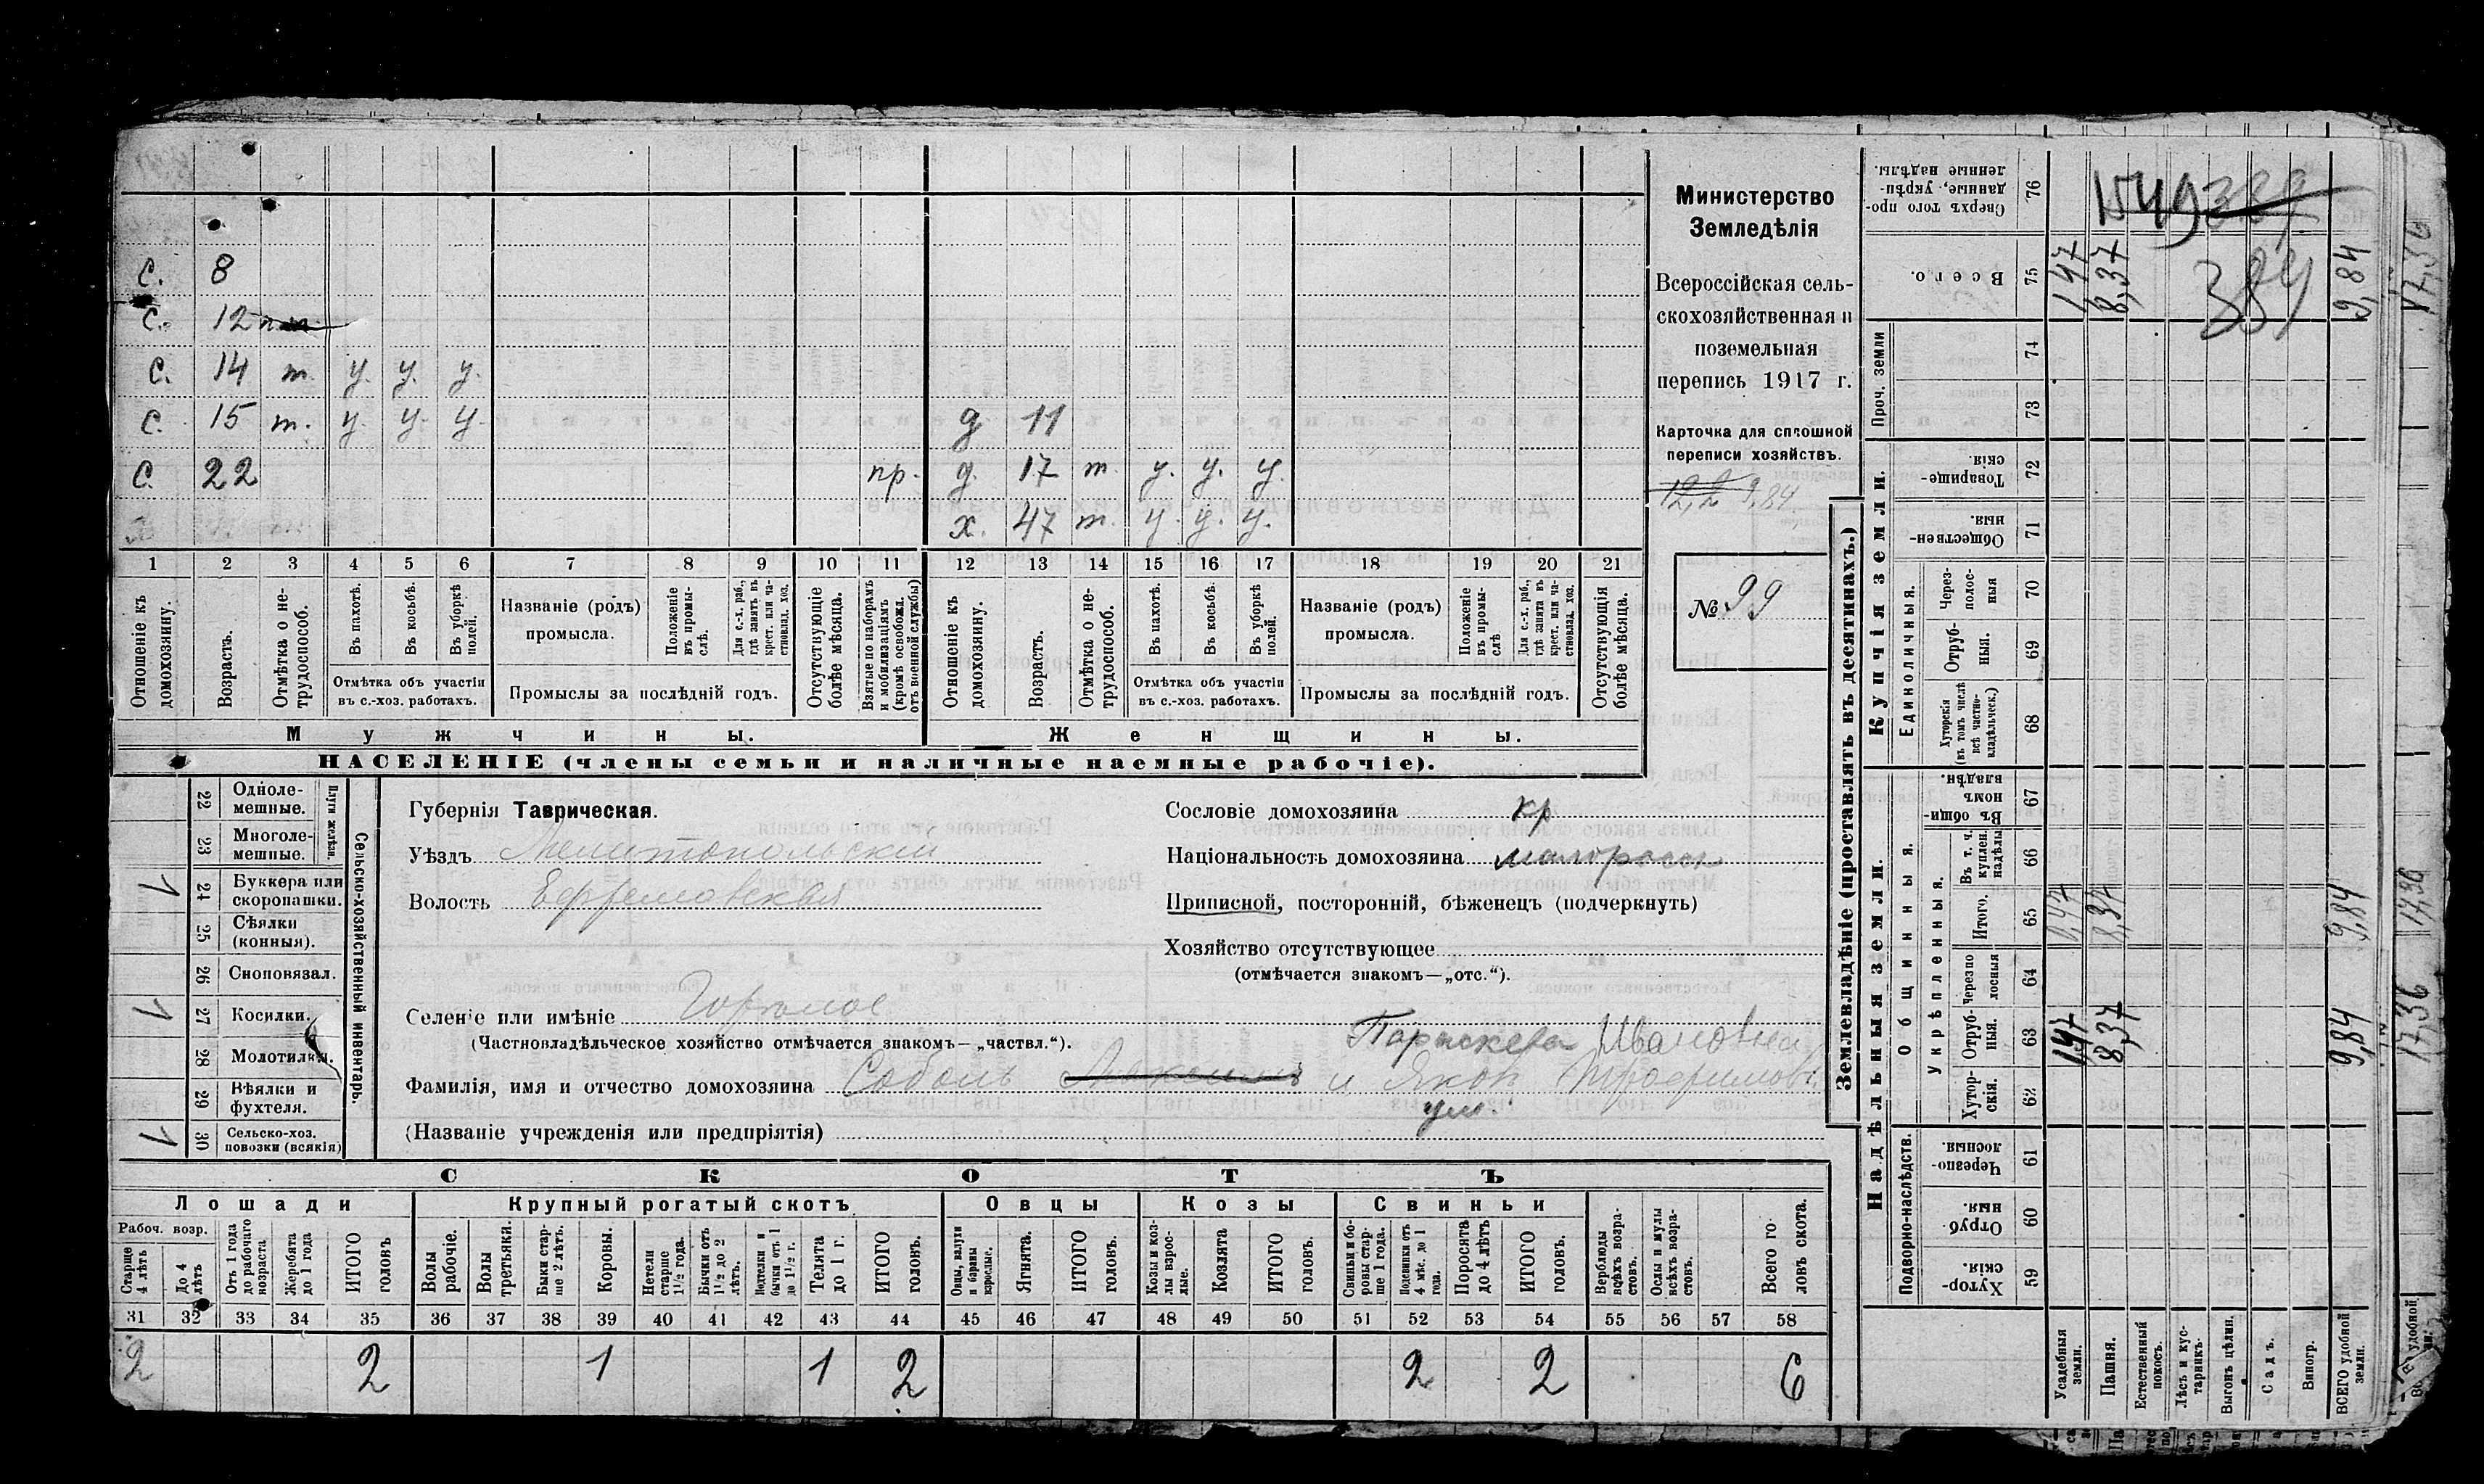 с. 8
с. 12
с. 14 т. у. у. у.
с. 15 т. у. у. у. д 11
с. 22 пр. д. 17 т у. у. у.
х. 47 т. у. у. у.
1 2 3 4 5 6 7 8 9 10 11 12 13 14 15 16 17 18 19 20 21
Отношеніе къ домохозяину.
Возрастъ.
Отмѣтка о нетрудоспособ.
Въ пахотѣ.
Въ косьбѣ.
Въ уборкѣ полей.
Отмѣтка объ участіи
въ с.-хоз. работахъ.
Названіе (родъ)
промысла.
Положеніе въ промыслѣ.
Для с.-х. раб., гдѣ занятъ въ крест. или частновлад. хоз.
Промыслы за послѣдній годъ.
Отсутствующіе болѣе мѣсяца.
Взятые по наборамъ и мобилизаціямъ (кромѣ освобожд. отъ военной службы)
Отношеніе къ домохозяину.
Возрастъ.
Отмѣтка о нетрудоспособ.
Въ пахотѣ.
Въ косьбѣ.
Въ уборкѣ полей.
Отмѣтка объ участіи
въ с.-хоз. работахъ.
Названіе (родъ)
промысла.
Положеніе въ промыслѣ
Для с.-х. раб., гдѣ занята въ крест. или частновлад. хоз.
Промыслы за послѣдній годъ.
Отсутствующія болѣе мѣсяца.
Мужчины.
Женщины.
НАСЕЛЕНІЕ (члены семьи и наличные наемные рабочіе).
Министерство
Земледѣлія
Всероссійская сель-
скохозяйственная и
поземельная
перепись 1917 г.
Карточка для сплошной
переписи хозяйствъ.
12,2 9,84
№ 99
22 Одноле-
мешные.
23 Многоле-
мешные.
Плуги желѣзн.
1 24 Буккера или
скоропашки.
25 Сѣялки
(конныя).
26 Сноповязал.
1 27 Косилки.
28 Молотилки.
29 Вѣялки и
фухтеля.
1 30 Сельско-хоз.
повозки (всякія)
Сельско-хозяйственный инвентарь.
Губернія Таврическая.
Уѣздъ Мелитопольскій
Волость Ефремовская
Селеніе или имѣніе
(Частновладѣльческое хозяйство отмѣчается знакомъ—„частвл.“).
Параскева Ивановна
Фамилія, имя и отчество домохозяина Соболь и Яков Трофимов.
ум.
(Названіе учрежденія или предпріятія)
Сословіе домохозяина кр
Національность домохозяина малороссъ
Приписной, посторонній, бѣженецъ (подчеркнуть)
Хозяйство отсутствующее
(отмѣчается знакомъ—„отс.“).
СКОТЪ
Лошади
Крупный рогатый скотъ
Овцы
Козы
Свиньи
Рабоч. возр.
Старше 4 лѣтъ
До 4 лѣтъ
Отъ 1 года до рабочаго возраста
Жеребята до 1 года
ИТОГО головъ
Волы рабочіе.
Волы третьяки.
Быки старше 2 лѣтъ.
Коровы.
Нетели старше 1½ года.
Бычки отъ 1½ до 2 лѣтъ.
Подтелки и бычки отъ 1 до 1½ г.
Телята до 1 г.
ИТОГО головъ.
Овцы, валухи и бараны взрослые.
Ягнята.
ИТОГО головъ.
Козы и козлы взрослые.
Козлята
ИТОГО головъ.
Свиньи и боровы старше 1 года.
Подсвинки отъ 4 мѣс. до 1 года.
Поросята до 4 лѣтъ
ИТОГО головъ.
Верблюды всѣхъ возрастовъ.
Ослы и мулы всѣхъ возрастовъ.
Всего головъ скота.
31 32 33 34 35 36 37 38 39 40 41 42 43 44 45 46 47 48 49 50 51 52 53 54 55 56 57 58
2 2 1 1 2 2 2 6
Землевладѣніе (проставлять въ десятинахъ.)
Надѣльныя земли.
Купчія земли.
Проч. земли
Подворно-наслѣдств.
Общинныя.
Укрѣпленныя.
Единоличныя.
Сверхъ того проданные, укрѣпленные надѣлы. 76
Всего. 75 1,47 8,37 9,84
74
73
Товарищескія 72
Общественныя. 71
Черезполосныя 70
Отрубныя. 69
Хуторскія (въ томъ числѣ всѣ частновладѣльческ.) 68
Въ общинномъ владѣн. 67
Въ т. ч. куплен. надѣлы 66
Итого. 65 1,47 8,37 9,84
Черезполосныя 64
Отрубныя. 63 1,47 8,37 9,84
Хуторскія. 62
Черезполосныя 61
Отрубныя. 60
Хуторскія 59
Усадебныя земли.
Пашня.
Естественный покосъ.
Лѣсъ и кустарникъ.
Выгонъ цѣлин.
Садъ.
Виногр.
ВСЕГО удобной земли.
384
17,36
17,36
17,36